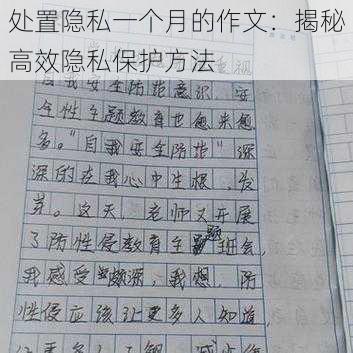 处置隐私一个月的作文：揭秘
高效隐私保护方法
自我安全防范意识，安
全性主题教育也愈来愈
多。"自我安全防范"深
深的在我心中生根，发
芽。这天，老师又开展
了防性侵教育主题班会，
我感受颇深，我想，防
性侵应该让更多人知道，